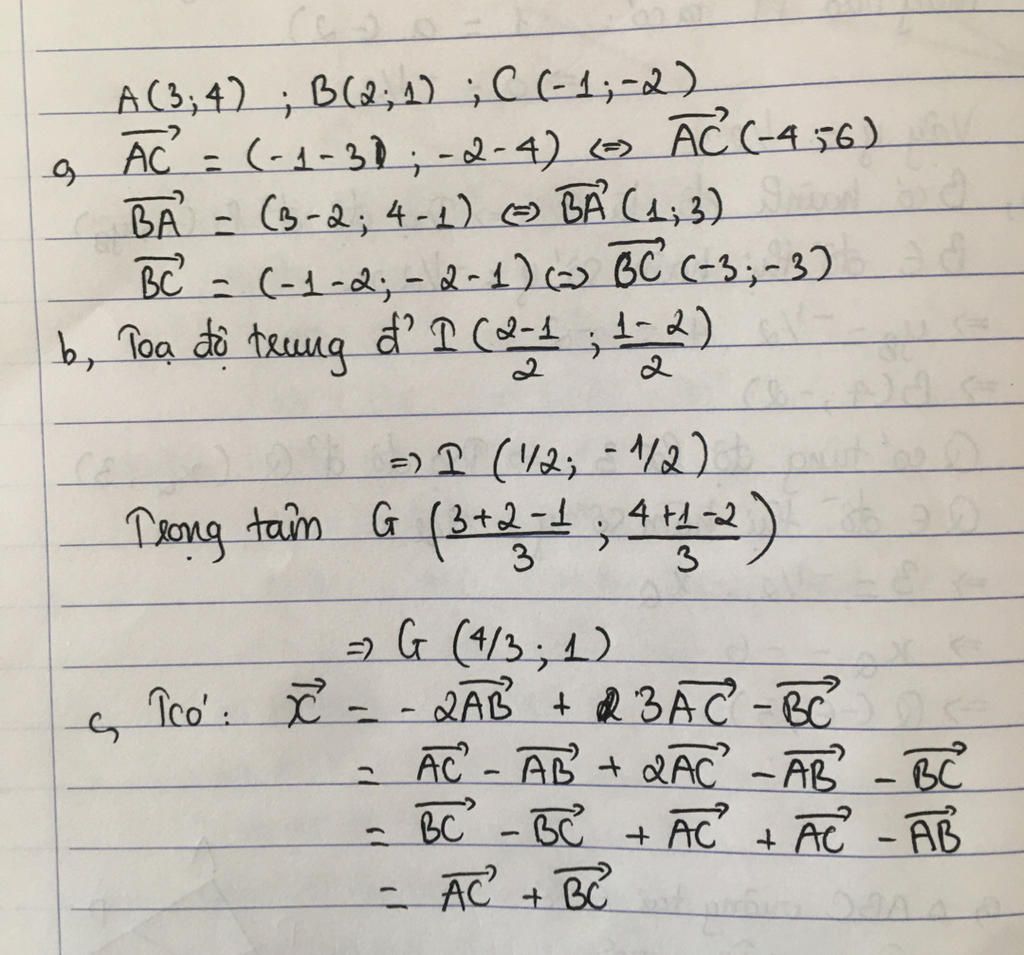 A(3;4) ; B(2;1) ; C(-1;-2)
a, \overrightarrow{AC} = (-1-3) ; -2-4) <=> \overrightarrow{AC} (-4;-6)
\overrightarrow{BA} = (3-2; 4-1) <=> \overrightarrow{BA} (1;3)
\overrightarrow{BC} = (-1-2; -2-1) <=> \overrightarrow{BC} (-3;-3)
b, Toạ độ trung đ' I (\frac{2-1}{2} ; \frac{1-2}{2})
=> I (1/2; -1/2)
Trọng tâm G (\frac{3+2-1}{3} ; \frac{4+1-2}{3})
=> G (4/3; 1)
c, Tcó: \overrightarrow{x} = -2\overrightarrow{AB} + 3\overrightarrow{AC} - \overrightarrow{BC}
= \overrightarrow{AC} - \overrightarrow{AB} + 2\overrightarrow{AC} - \overrightarrow{AB} - \overrightarrow{BC}
= \overrightarrow{BC} - \overrightarrow{BC} + \overrightarrow{AC} + \overrightarrow{AC} - \overrightarrow{AB}
= \overrightarrow{AC} + \overrightarrow{BC}